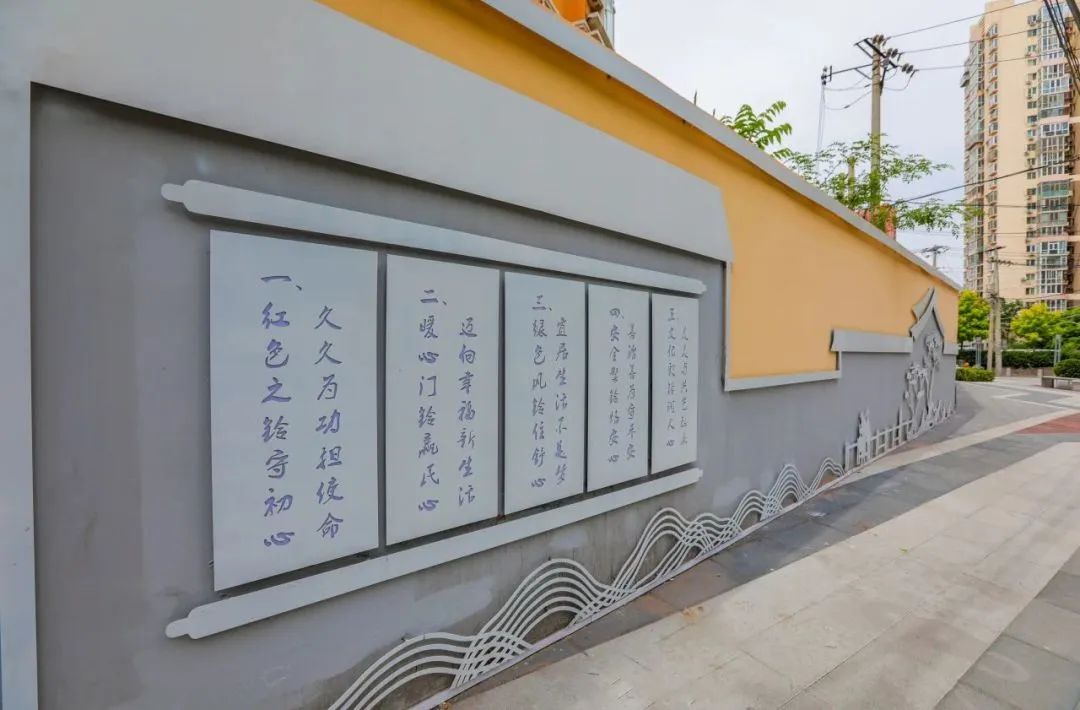 一、红色之铃守初心
久久为功担使命
二、暖心门铃赢民心
迈向幸福新生活
三、绿色风铃住舒心
宜居生活不是梦
四、安全警铃安心
善治善为守平安
五、文化铃润人心
人人与共艺